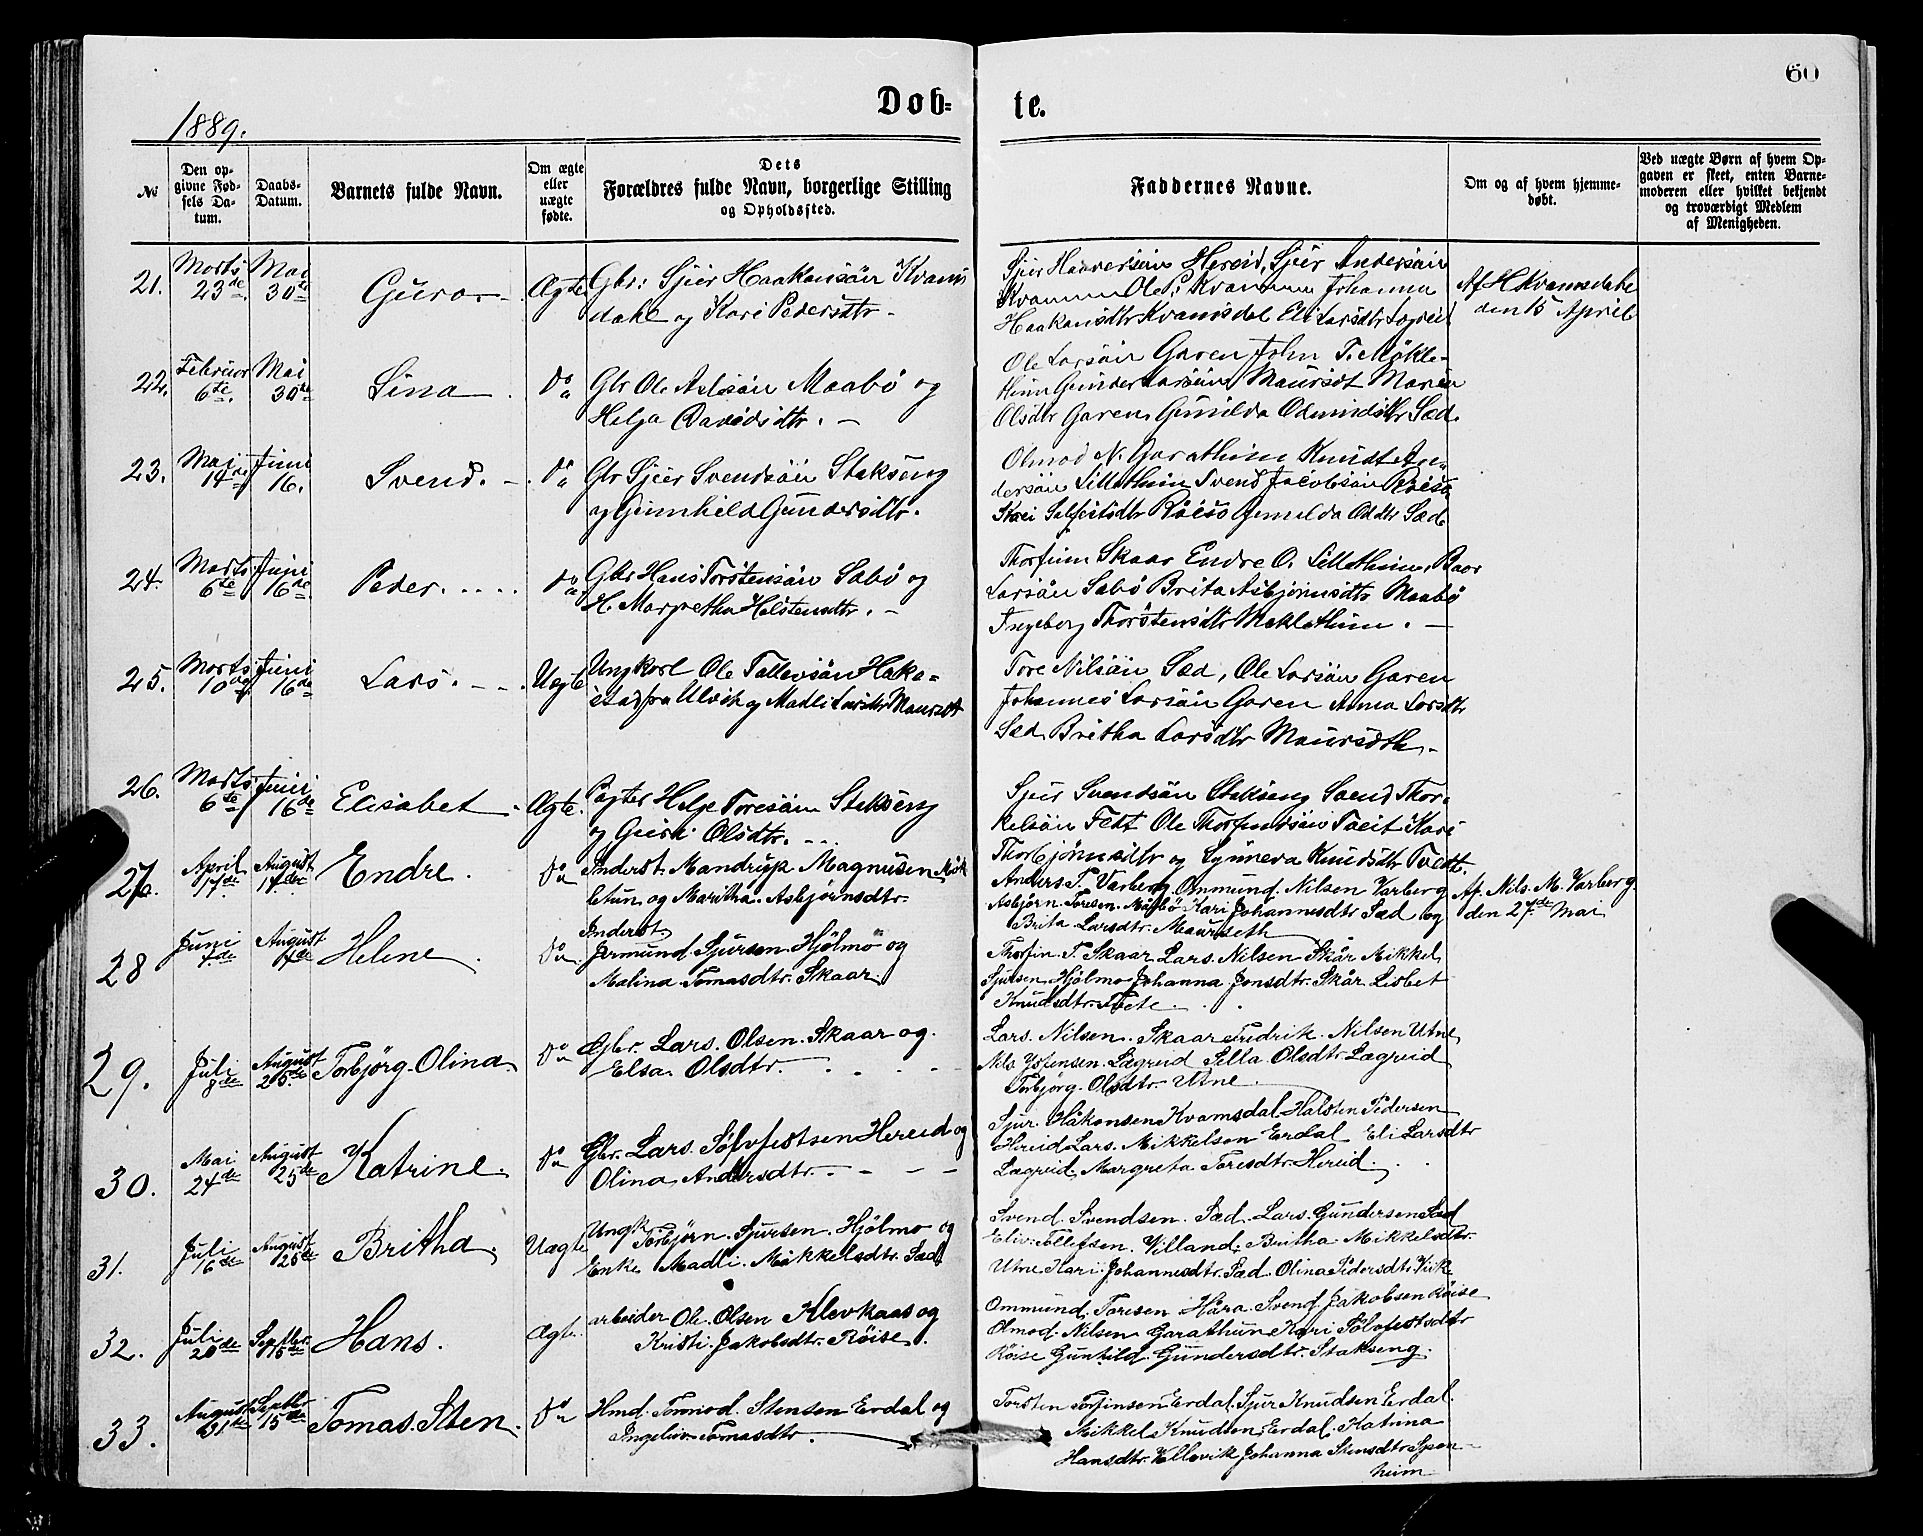 60
Døb-
te.
1889.
№
Den op-
givne Fød-
sels Da-
tum.
Daabs-
Datum.
Barnets fulde Navn.
Om ægte
eller
uægte
fødte.
Dets
Forældres fulde Navn, borgerlige Stilling
og Opholdssted.
Faddernes Navne.
Om og af hvem hjemme-
døbt.
Ved uægte Børn af hvem Op-
gaven er skeet, enten Barne-
moderen eller hvilket bekjendt
og troværdigt Medlem
af Menigheden.
21. Marts 23de Mai 30te Guro Ægte Gbr: Sjur Haakonsön Kvams
dahl og Kari Pedersdtr
Sjur Haaversön Hereid, Sjur Andersön
Kvammen Ole P. Kvammen Johanna
Haakonsdtr Kvamsdal Eli Larsdtr Lægreid
Af H Kvamsdahl
den 15 April
22. Februar 6te Mai 30te Sina Do Gbr Ole Aslsön Maabø og
Helga Davidsdtr.
Ole Larsön Garen John T. Møkle-
thun Gunder Larsön Maursæt Maria
Olsdtr Garen Gunilda Odmundsdtr Sæd
23. Mai 14de Juni 16. Svend. Do Gbr Sjur Svendsön Stakseng
og Gunhild Gundersdtr.
Olmod N. Garathun Knudt An-
dersön Lillethun Svend Jacobsön Røise
Kari Sølfestsdtr Røise Gunilda Oddtr Sæd
24. Marts 6te Juni 16de Peder. Do Gbr Hans Torstensön Sabø og
H. Margretha Holstensdtr.
Thorfinn Skaar Endre O. Lillethun, Baar
Larsön Sabø Brita Asbjørnsdtr Maabø
Ingeborg Thorstensdtr Møklethun.
25. Marts 10de Juni 16de Lars. Uægte Ungkarl Ole Tollevsön Haka-
stad fra Ulvik og Madli Larsdtr Maurset
Tore Nilsön Sæd, Ole Larsön Garen
Johannes Larsön Garen Anna Larsdtr
Sæd Britha Larsdtr Maurseth.
26. Marts 6te Juni 16de Elisabet Ægte. Pagter Helge Toresön Stakseng
og Guri Olsdtr.
Sjur Svendsön Stakseng Svend Thor-
kelsön Fett Ole Thorfindsön Tveit Kari
Thorbjörnsdtr og Synneva Knudsdtr Tvedt.
27. April 17de August 14de Endre. Do Inderst Mandrup Magnusen Møk
letun og Maritha Asbjørnsdtr.
Anders T. Varberg. Ommund. Nilsen Varberg
Asbjørn. Toresen. Måbø Kari Johannesdtr Sæd og
Brita Larsdtr. Maurseth
Af. Nils. M. Varberg
den 27de Mai
28 Juni 4de August 4de Helene. Do Inderst
Jermund. Sjursen. Hjølmo og
Malina Tomasdtr. Skaar.
Thorfin. T. Skaar Lars. Nilsen Skår Mikkel
Sjursen Hjølmo Johanna Jonsdtr. Skår Lisbet
Knudsdtr.
29. Juli 8de August 25de Torbjörg. Olina Do Gbr. Lars. Olsen. Skaar og.
Elsa. Olsdtr.
Lars. Nilsen. Skaar Fredrik. Nilsen Utne
Nils Lægreid Sella Olsdtr Lægreid
Torbjørg. Olsdtr Utne
30. Mai 24de August 25de Katrine. Do Gbr. Lars. Sølvfestsen Hereid og
Olina Andersdtr.
Sjur. Håkonsen Kvamsdal. Halsten Pedersen
Hereid Lars. Mikkelsen Erdal Eli Larsdtr
Lægreid. Margreta Toresdtr. Hereid.
31. Juli 16de August 25de Britha. Uægte Ungk Torbjørn. Sjursen. Hjölmo og
Enke Madli. Mikkelsdtr. Sæd
Svend. Svendsen. Sæd. Lars. Gundersen Sæd
Eliv. Tollefsen. Villand. Britha Mikkelsdtr.
Utne Kari Johannesdtr. Sæd. Olina Pedersdtr. Viik
32. Juli 20de Septbr. 15de Hans. Ægte. arbeider Ole. Olsen Klevkaas og
Kristi. Jakobsdtr. Røise.
Ommund. Toresen Håra. Svend. Jakobsen Røise
Olmod. Nilsen Garathun Kari Sølvfestsdtr
Røise Gunhild. Gundersdtr. Stakseng.
33. August 31te Septbr 15de Tomas. Sten. Do Hmd. Tormod. Stensen Erdal og
Ingeliv. Tomasdtr.
Torsten Torfinsen Erdal. Sjur Knudsen Erdal.
Mikkel Knudsen Erdal. Katrina
Hansdtr. Vallavik Johanna Stensdtr Spån-
heim